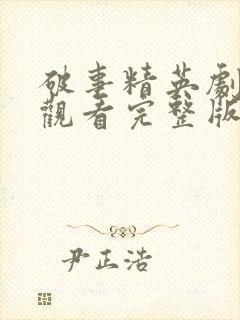 破事精英劇
觀看完整版
尹正浩